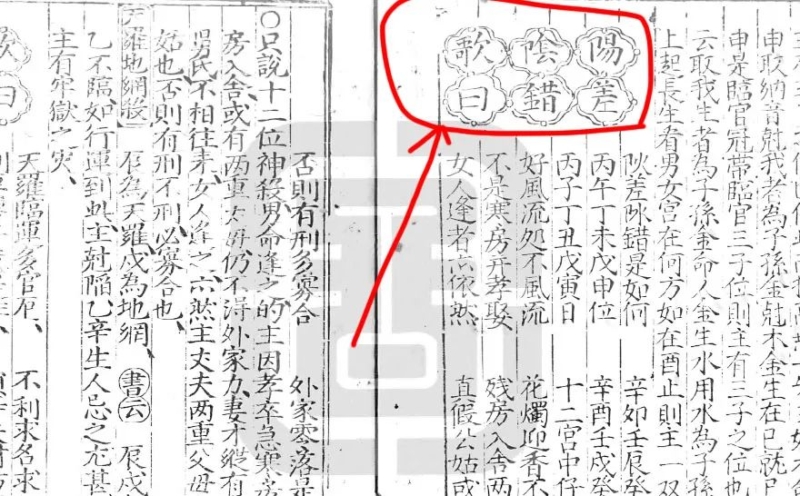 申取納音尅我者為子孫金尅木金生在巳就巳
申是臨官冠帶臨官三子位則主有三子之位也
云取我生者為子孫金命人金生水用水為子孫
上起長生看男女宮在何方如在酉止則主一双
陽差
隂錯
歌曰
阦差阥錯是如何 辛卯壬辰癸
丙午丁未戊申位 辛酉壬戌癸
丙子丁丑戊寅日 十二宮中仔
好風流処不風流 花燭迎香不
不是寒房并孝娶 残房入舍两
女人逢者亦依然 真假公姑或
否則有刑多寡合 外家零落是
○只說十二位神殺男命逢之的主因孝卒急寒房
房入舍或有两重丈母仍不淂外家力妻才縱有
舅氏不相往来女人逢之亦然主丈夫两重父母
姑也否則有刑不刑必寡合也
天羅地網殺 辰為天羅戌為地網 書云 辰戌
乙不臨如行運到此主尅陥乙辛生人忌之尤甚
主有牢獄之灾
歌曰
天羅臨運多官厄 不利求名求